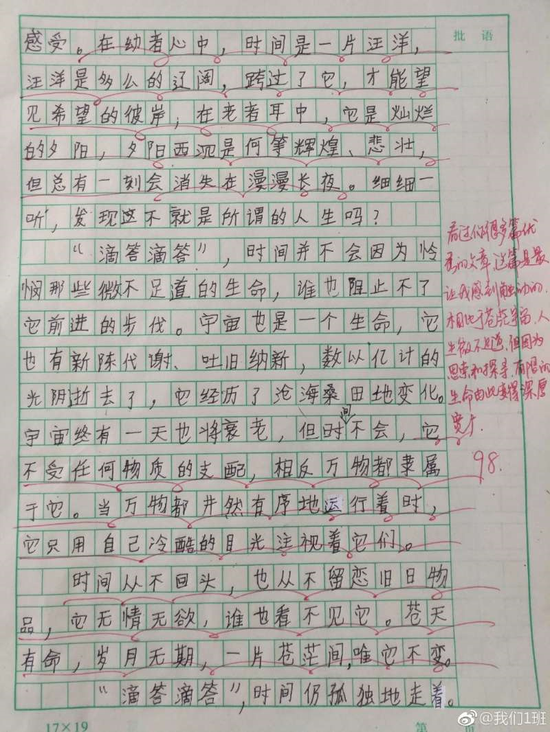 批语
感受。在幼者心中，时间是一片汪洋，
汪洋是多么的辽阔，跨过了它，才能望
见希望的彼岸，在老者耳中，它是灿烂
的夕阳，夕阳西沉是何等辉煌、悲壮，
但总有一刻会消失在漫漫长夜。细细一
听，发现这不就是所谓的人生吗？
“滴答滴答”，时间并不会因为怜
悯那些微不足道的生命，谁也阻止不了
它前进的步伐。宇宙也是一个生命，它
也有新陈代谢、吐旧纳新，数以亿计的
光阴逝去了，它经历了沧海桑田地变化。
宇宙终有一天也将衰老，但时间不会，它
不受任何物质的支配，相反万物都隶属
于它。当万物都井然有序地运行着时，
它只用自己冷酷的目光注视着它们。
时间从不回头，也从不留恋旧日物
品，它无情无欲，谁也看不见它。苍天
有命，岁月无期，一片苍茫间，唯它不变。
“滴答滴答”，时间仍孤独地走着。
看过你很多篇优
秀的文章，这篇是最
让我感到触动的，
天地苍茫，人
生微不足道，但因为
思索和探寻，有限的
生命由此变得深厚
宽广
98.
17×19
第 页
@我们1班